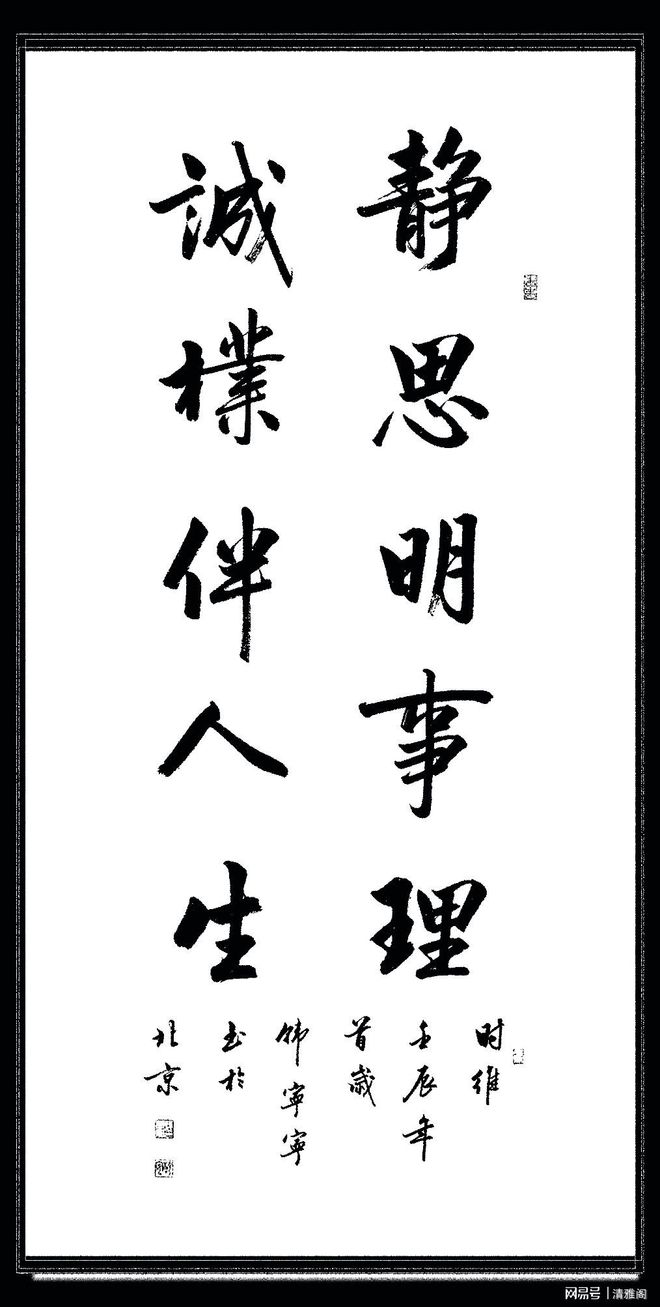 静思明事理
誠樸伴人生
时维
壬辰年
首歲
韩寧寧
书於
北京
网易号 | 清雅阁